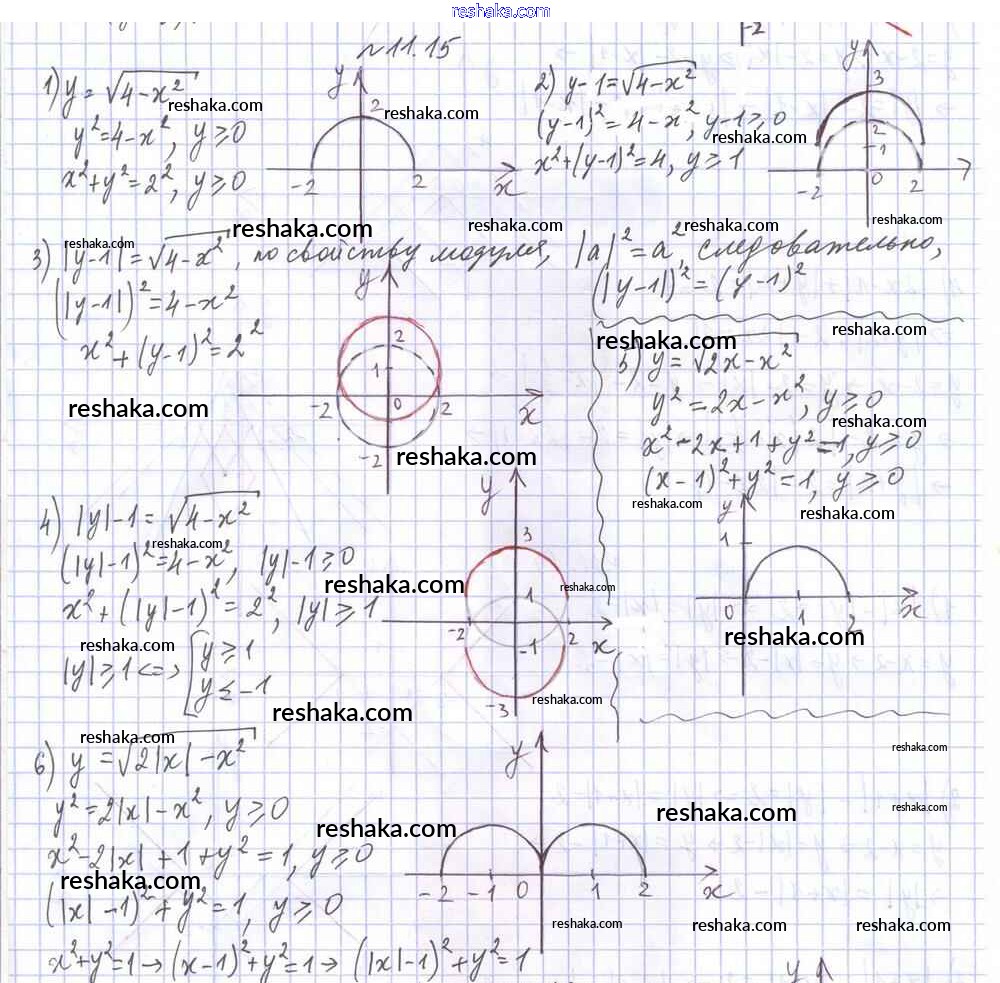 reshaka.com
№11.15
1) y = √4-x²
y² = 4-x², y ≥ 0
x²+y² = 2², y ≥ 0
y
2
-2
2
x
2) y-1 = √4-x²
(y-1)² = 4-x², y-1 ≥ 0
x²+(y-1)² = 4, y ≥ 1
y
3
2
1
-2
0
2
3) |y-1| = √4-x², по свойству модуля, |a|² = a², следовательно,
(|y-1|)² = (y-1)²
(|y-1|)² = 4-x²
x²+(y-1)² = 2²
y
2
1
-2
0
2
x
-2
4) |y|-1 = √4-x²
(|y|-1)² = 4-x², |y|-1 ≥ 0
x²+(|y|-1)² = 2², |y| ≥ 1
|y| ≥ 1 <=> [y ≥ 1
y ≤ -1
y
3
1
-2
2
x
-1
-3
5) y = √2x-x²
y² = 2x-x², y ≥ 0
x²-2x+1+y² = 1, y ≥ 0
(x-1)²+y² = 1, y ≥ 0
y
1
0
1
2
x
6) y = √2|x|-x²
y² = 2|x|-x², y ≥ 0
x²-2|x|+1+y² = 1, y ≥ 0
(|x|-1)²+y² = 1, y ≥ 0
x²+y² = 1 → (x-1)²+y² = 1 → (|x|-1)²+y² = 1
y
-2 -1 0 1 2
x
y